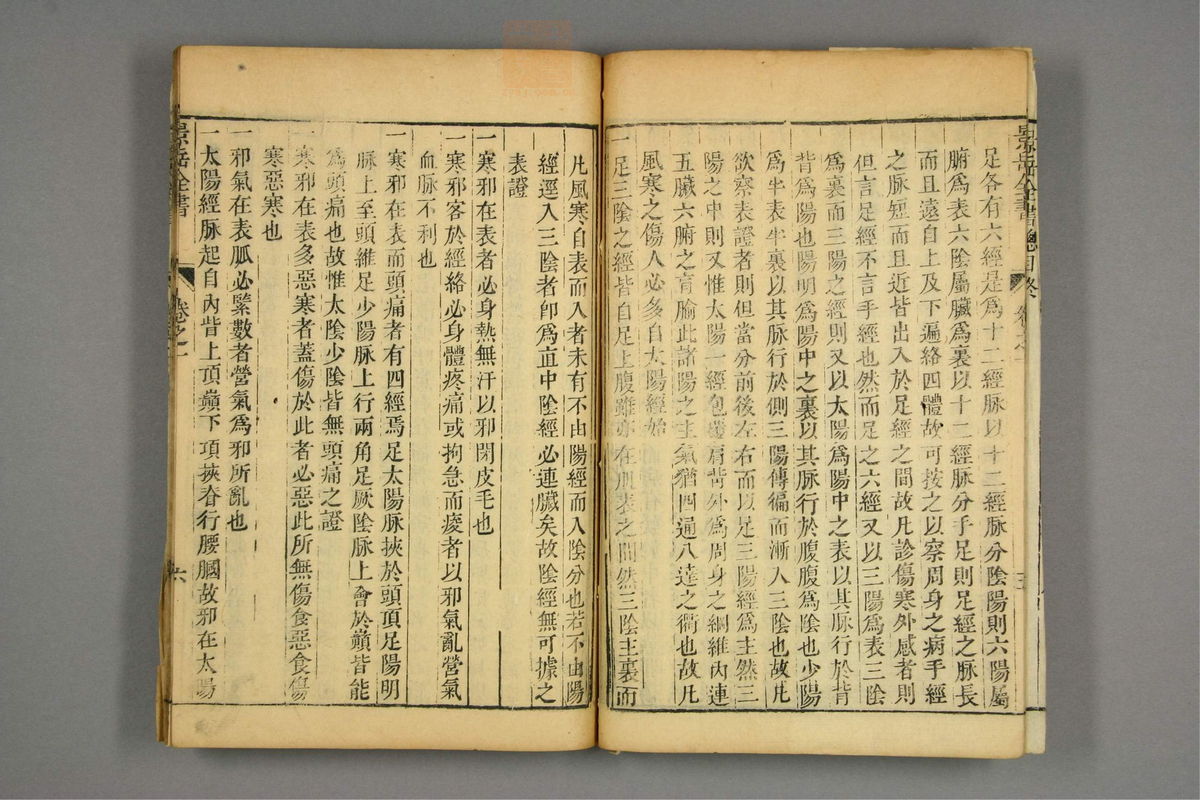 景岳全書總目終
足各有六經是爲十二經脉以十二經脉分陰陽則六陽屬
腑爲表六陰屬臟爲裏以十二經脉分手足則足經之脉長
而且遠自上及下遍絡四體故可按之以察周身之病手經
之脉短而且近皆出入於足經之間故凡診傷寒外感者則
但言足經不言手經也然而足之六經又以三陽爲表三陰
爲裏而三陽之經則又以太陽爲陽中之表以其脉行於背
背爲陽也陽明爲陽中之裏以其脉行於腹腹爲陰也少陽
爲半表半裏以其脉行於側三陽傳徧而漸入三陰也故凡
欲察表證者則但當分前後左右而以足三陽經爲主然三
陽之中則又惟太陽一經包覆肩背外爲周身之綱維內連
五臟六腑之肓腧此諸陽之主氣猶四通八達之衢也故凡
風寒之傷人必多自太陽經始
一足三陰之經皆自足上腹雖亦在肌表之間然三陰主裏而
凡風寒自表而入者未有不由陽經而入陰分也若不由陽
經逕入三陰者卽爲直中陰經必連臟矣故陰經無可據之
表證
一寒邪在表者必身熱無汗以邪閉皮毛也
寒邪客於經絡必身體疼痛或拘急而痠者以邪氣亂營氣
血脉不利也
一寒邪在表而頭痛者有四經焉足太陽脉挾於頭頂足陽明
脉上至頭維足少陽脉上行兩角足厥陰脉上會於巔皆能
爲頭痛也故惟太陰少陰皆無頭痛之證
一寒邪在表多惡寒者蓋傷於此者必惡此所無傷食惡食傷
寒惡寒也
一邪氣在表脈必緊數者營氣爲邪所亂也
一太陽經脉起自內眥上頂巔下項挾脊行腰膕故邪在太陽
景岳全書
卷之一
六